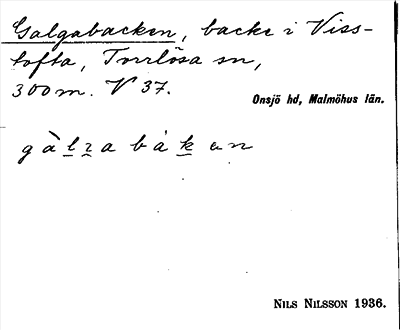 Galgabacken, backe i Viss-
tofta, Torrlösa sn,
300 m. V 37.
Onsjö hd, Malmöhus län.
gàlʒa bákən
NILS NILSSON 1936.